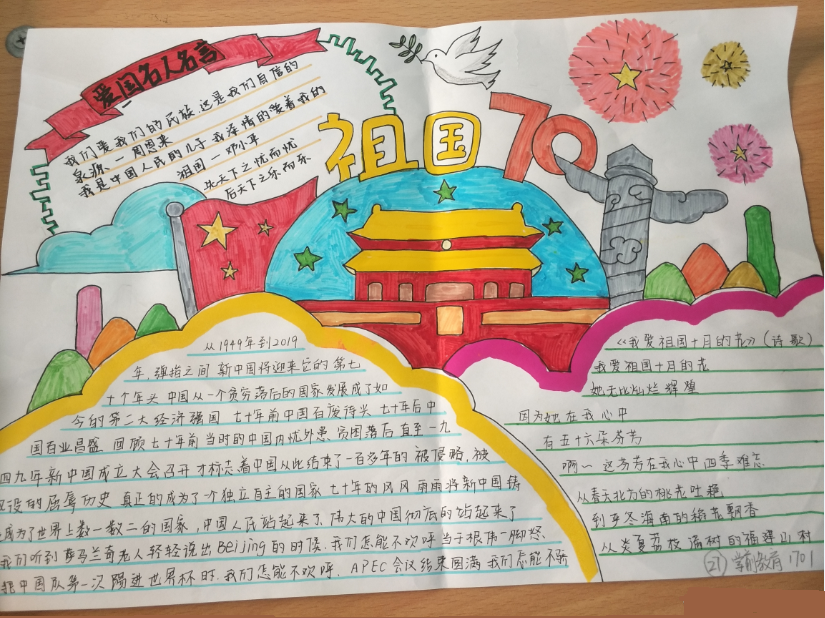 爱国名人名言
我们爱我们的民族 这是我们自信的
泉源 一周恩来
我是中国人民的儿子 我深情的爱着我的
祖国 一邓小平
先天下之忧而忧
后天下之乐而乐
祖国 70
从1949年到2019
年，弹指之间 新中国将迎来它的第七
十个年头 中国从一个贫穷落后的国家发展成了如
今的第二大经济强国 七十年前中国百废待兴 七十年后中
国百业昌盛 回顾七十年前当时的中国内忧外患、贫困落后 直至一九
四九年新中国成立大会召开才标志着中国从此结束了一百多年的 被侵略，被
奴役的屈辱历史 真正的成为了一个独立自主的国家 七十年的风风雨雨将新中国铸
成为了世界上数一数二的国家，中国人民站起来了 伟大的中国彻底的站起来了
我们听到萨马兰奇老人轻轻说出Beijing的时候.我们怎能不欢呼 当于根伟一脚怒
中国队第一次踢进世界杯时.我们怎能不欢呼、APEC会议结束圆满 我们怎能不
《我爱祖国十月的花》（诗歌）
我爱祖国十月的花
她无比灿烂辉煌
因为她在我心中
有五十六朵芬芳
啊一 这芳香在我心中四季难忘
从春天北方的桃花吐艳
到寒冬海南的稻花飘香
从炎夏荔枝满树的福建山村
21 教育 1701